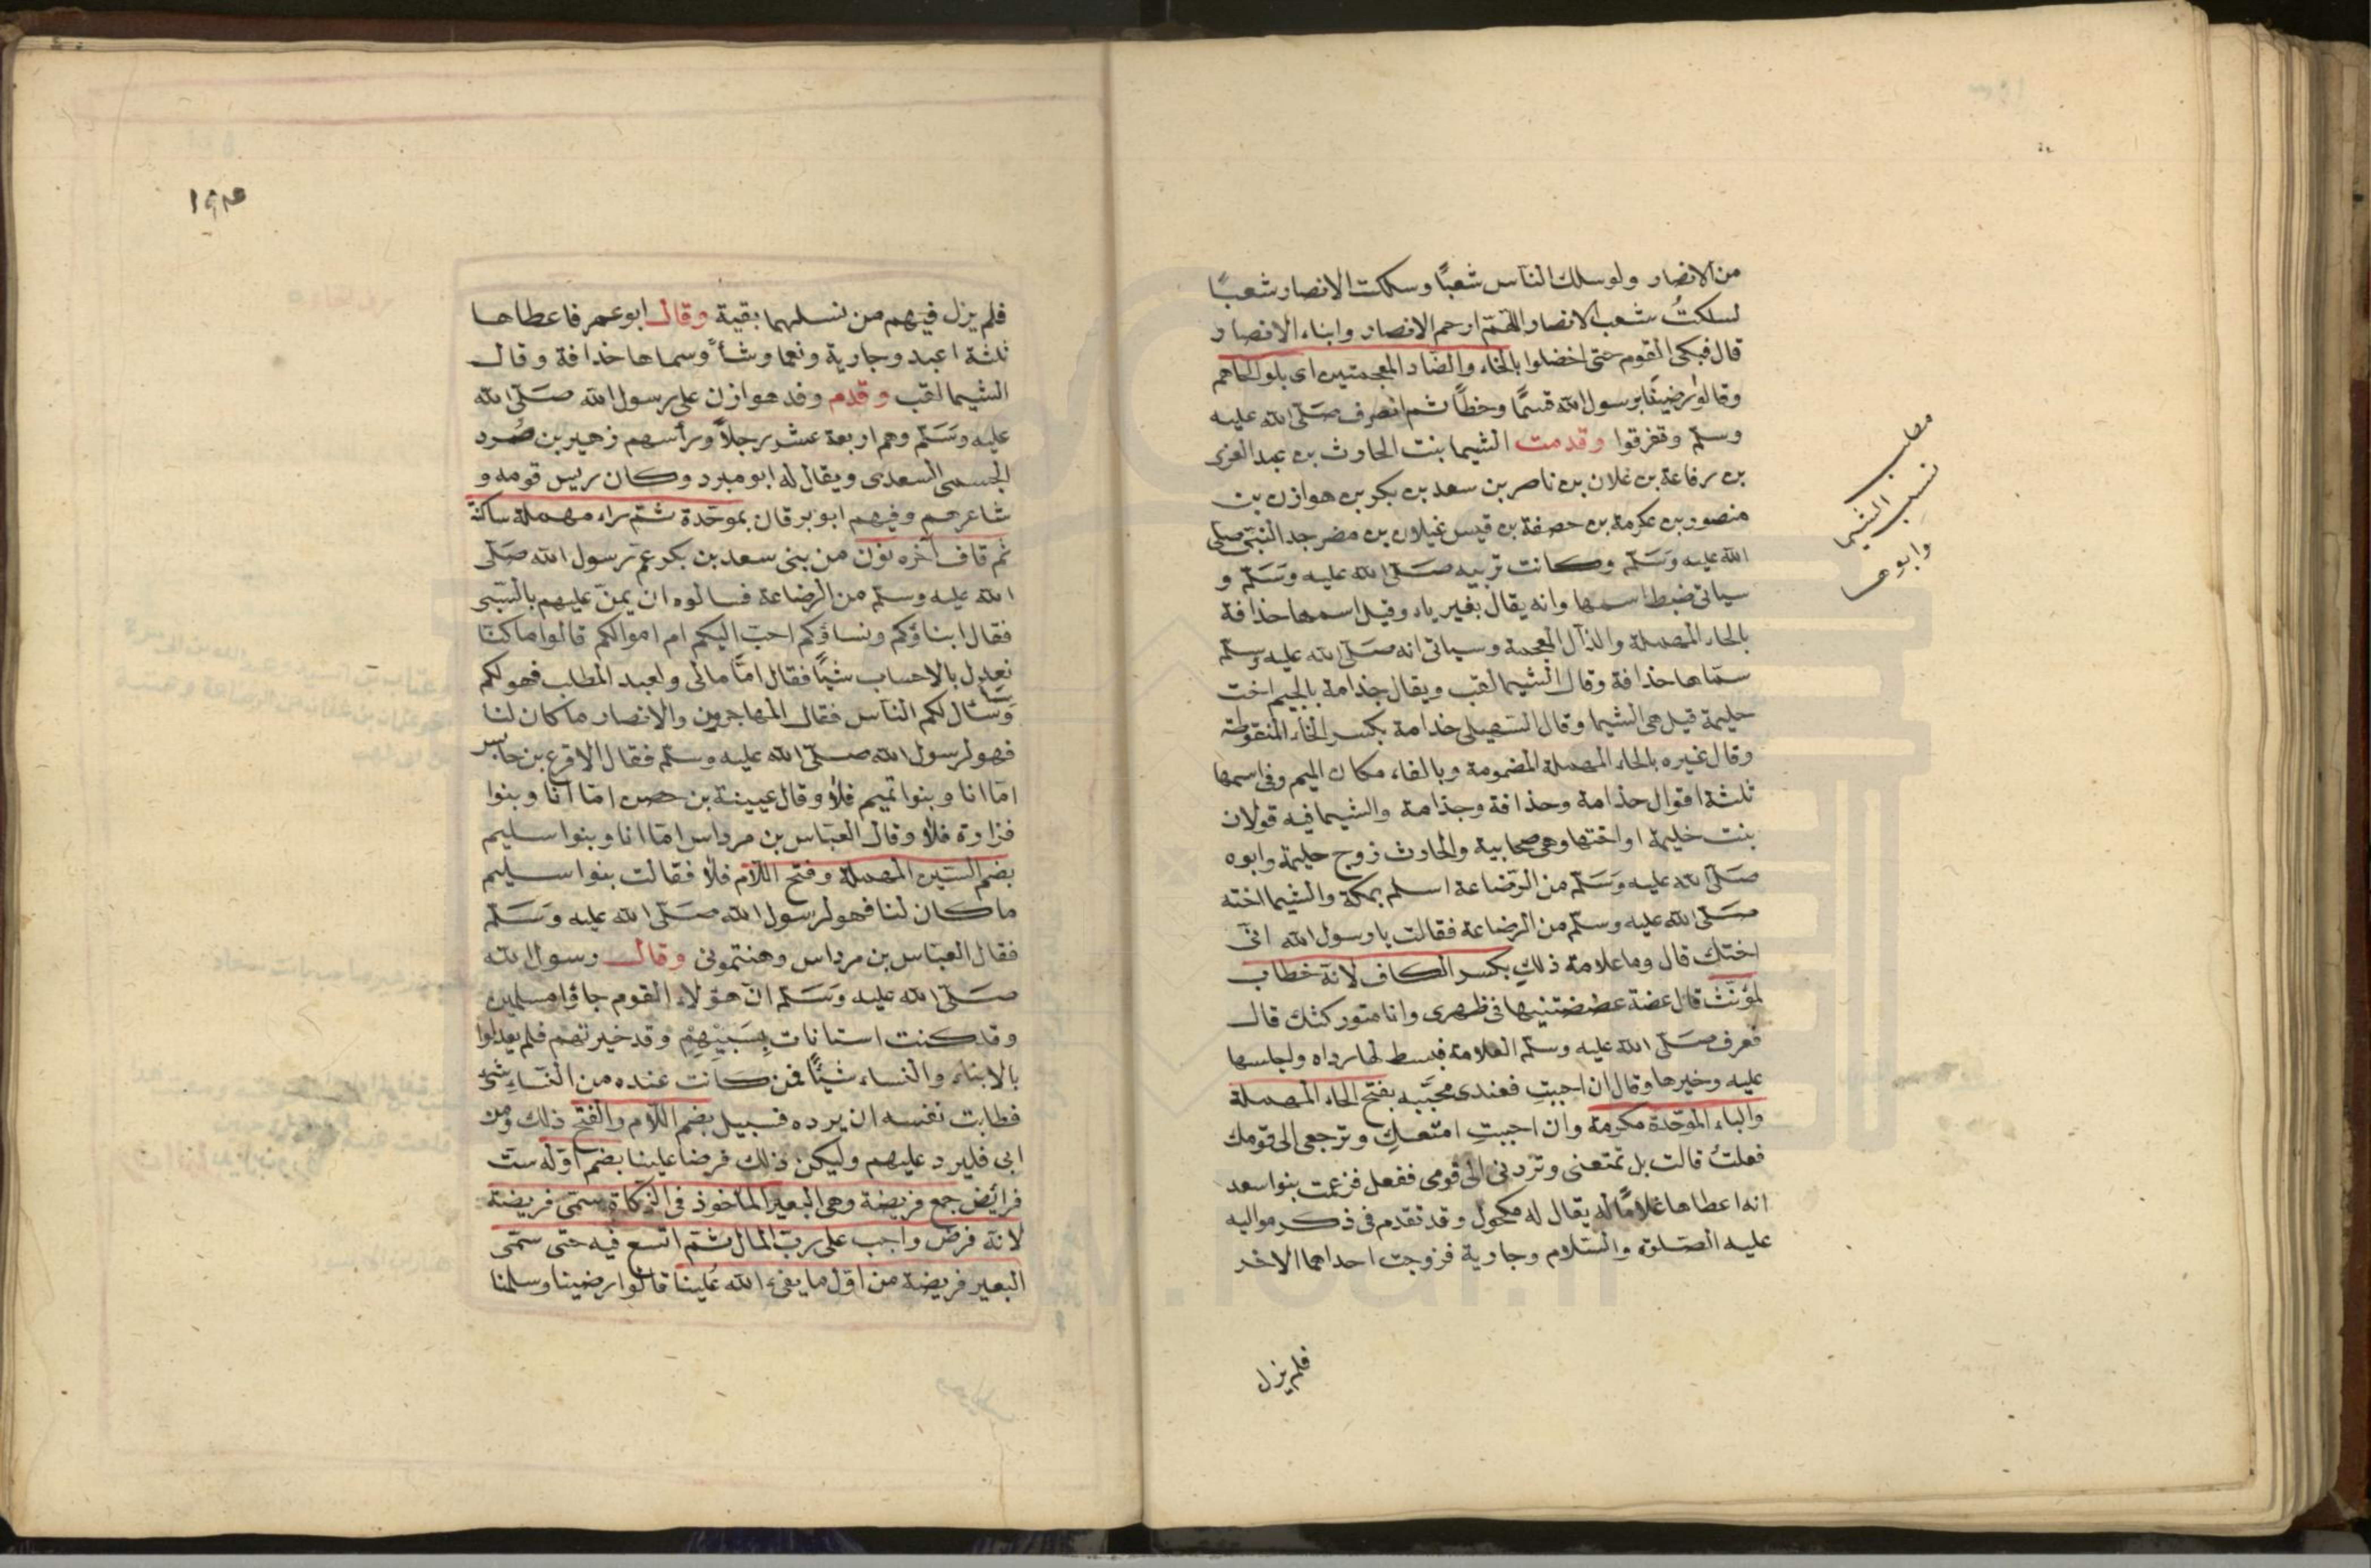 من الانصار ولو سلك الناس شعبًا وسلكت الانصار شعبًا
لسلكتُ شعب الانصار اللهمّ ارحم الانصار وابناء الانصار
قال فبكى القوم حتى اخضلوا بالخاء والضاد المعجمتين اى بلوا لحاهم
وقالوا رضينا برسول الله قسمًا وحظًا ثم انصرف صَلّى الله عليه
وسلّم وتفرقوا وقدمت الشيما بنت الحارث بن عبد العزى
بن رفاعة بن غلان بن ناصر بن سعد بن بكر بن هوازن بن
منصور بن عكرمة بن حصفة بن قيس غيلان بن مضر جد النبى صلى
الله عليه وَسَلّم وكانت تربيه صَلّى الله عليه وَسَلّم و
سياتى ضبط اسمها وانه يقال بغير ياء وقيل اسمها حذافة
بالحاء المهملة والذال المعجمة وسياتى انه صَلّى الله عليه وسلّم
سمّاها حذافة وقال الشيما لقب ويقال جذامة بالجيم اخت
حليمة قيل هى الشيما وقال السهيلى خدامة بكسر الخاء المنقوطة
وقال غيره بالحاء المهملة المضمومة وبالفاء مكان الميم وفى اسمها
ثلثة اقوال حذامة وحذافة وجذامة والشيما فيه قولان
بنت حليمة او اختها وهى صحابية والحارث زوج حليمة وابوه
صَلّى الله عليه وَسَلّم من الرّضاعة اسلم بمكة والشيما اخته
صَلّى الله عليه وسلّم من الرضاعة فقالت يا رسول الله انّى
اختك قال وما علامة ذلكِ بكسر الكاف لانه خطاب
لمؤنّث قال عضة عضضتنيها فى ظهرى وانا متوركتك قال
فعرف صَلّى الله عليه وسلّم العلامة فبسط لها رداه واجلسها
عليه وخيرها وقال ان احببتِ فعندى محبّبه بفتح الحاء المهملة
والباء الموحّدة مكرمة وان احببتِ امتعكِ وترجعى الى قومك
فعلتُ قالت بل تمتعنى وتردنى الى قومى ففعل فزعمت بنوا سعد
انه اعطاها غلامًا له يقال له مكحول وقد تقدم فى ذكر مواليه
عليه الصّلوة والسّلام وجارية فزوجت احداهما الاخر
فلم يزل
مطلب
نسب الشيما
وابوها
١٩٣
فلم يزل فيهم من نسلهما بقية وقال ابو عمر فاعطاها
ثلثة اعبد وجارية ونعما وشاً وسماها خدافة وقال
الشيما لقب وقدم وفد هوازن على رسول الله صَلّى الله
عليه وَسَلّم وهم اربعة عشر رجلاً ورأسهم زهير بن صُرد
الجسمى السعدى ويقال له ابو مبرد وكان ريس قومه و
شاعرهم وفيهم ابو برقان بموحّدة ثم راء مهملة ساكنة
ثم قاف آخره نون من بنى سعد بن بكر عم رسول الله صَلّى
الله عليه وسلّم من الرضاعة فسالوه ان يمنّ عليهم بالسّبى
فقال ابناؤكم ونساؤكم احبّ اليكم ام اموالكم قالوا ما كنّا
نعدل بالاحساب شيًا فقال امّا مالى ولعبد المطلب فهو لكم
وسَأسال لكم الناس فقال المهاجرون والانصار ما كان لنا
فهو لرسول الله صلّى الله عليه وسلّم فقال الاقرع بن حابس
امّا انا وبنوا تميم فلا وقال عيينة بن حصن امّا انا وبنوا
فزارة فلا وقال العبّاس بن مرداس امّا انا وبنوا سليم
بضم السّين المهملة وفتح اللّام فلا فقالت بنوا سليم
ما كان لنا فهو لرسول الله صَلّى الله عليه وَسَلّم
فقال العبّاس بن مرداس وهنتمونى وقال رسول الله
صَلّى الله عليه وَسَلّم انّ هؤلاء القوم جاؤا مسلمين
وقد كنت استانات بِسَبْيِهِمْ وقد خيرتهم فلم يعدلوا
بالابناء والنساء شيئًا فمن كانت عنده من النّساء شئ
فطابت نفسه ان يرده فسبيل بضم اللّام والفتح ذلك ومن
ابى فليرد عليهم وليكن ذلك فرضا علينا بضم اوّله ست
فرائض جمع فريضة وهى البعير الماخوذ فى الزكاة سمّى فريضة
لانّه فرض واجب على ربّ المال ثم اتسع فيه حتى سمّى
البعير فريضة من اوّل ما يفىء الله علينا قالوا رضينا وسلمنا